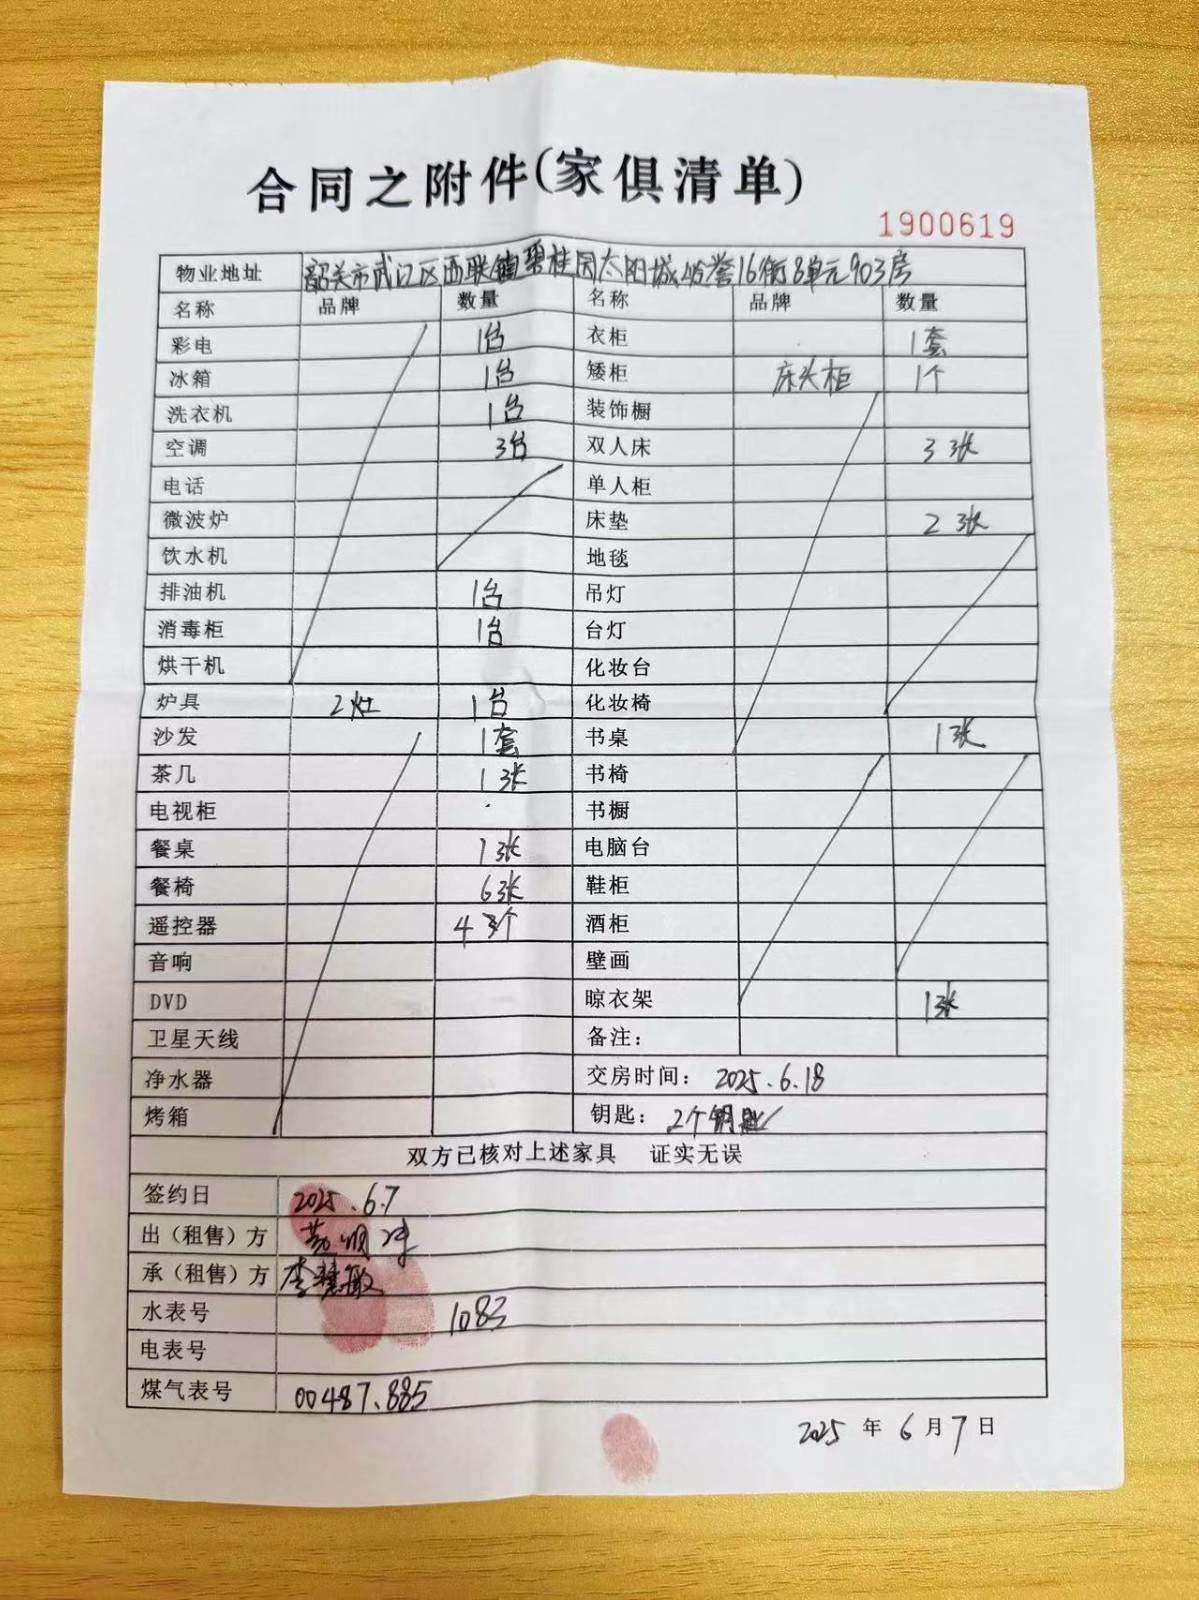 合同之附件(家俱清单)
1900619
物业地址 韶关市武江区西联镇碧桂园太阳城 誉16街8单元903房
名称 品牌 数量 名称 品牌 数量
彩电 1台 衣柜 1套
冰箱 1台 矮柜 床头柜 1个
洗衣机 1台 装饰橱
空调 3台 双人床 3张
电话 单人柜
微波炉 床垫 2张
饮水机 地毯
排油机 1台 吊灯
消毒柜 1台 台灯
烘干机 化妆台
炉具 2灶 1台 化妆椅
沙发 1套 书桌 1张
茶几 1张 书椅
电视柜 书橱
餐桌 1张 电脑台
餐椅 6张 鞋柜
遥控器 4个 酒柜
音响 壁画
DVD 晾衣架 1张
卫星天线 备注：
净水器 交房时间： 2025.6.18
烤箱 钥匙： 2个钥匙
双方已核对上述家具 证实无误
签约日 2025.6.7
出（租售）方
承（租售）方 李慧敏
水表号 1083
电表号
煤气表号 00487.885
2025年6月7日